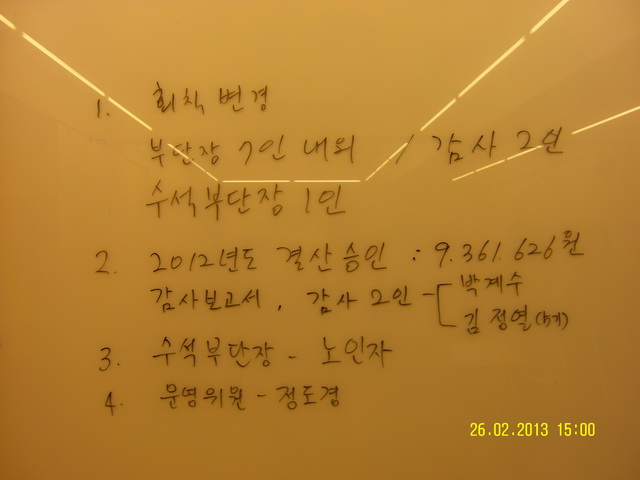 1. 회칙 변경
부단장 7인 내외 / 감사 2인
수석부단장 1인
2. 2012년도 결산승인 : 9.361.626원
감사보고서, 감사 2인 - 박계수
김정열
3. 수석부단장 - 노인자
4. 운영위원 - 정도경
26.02.2013 15:00